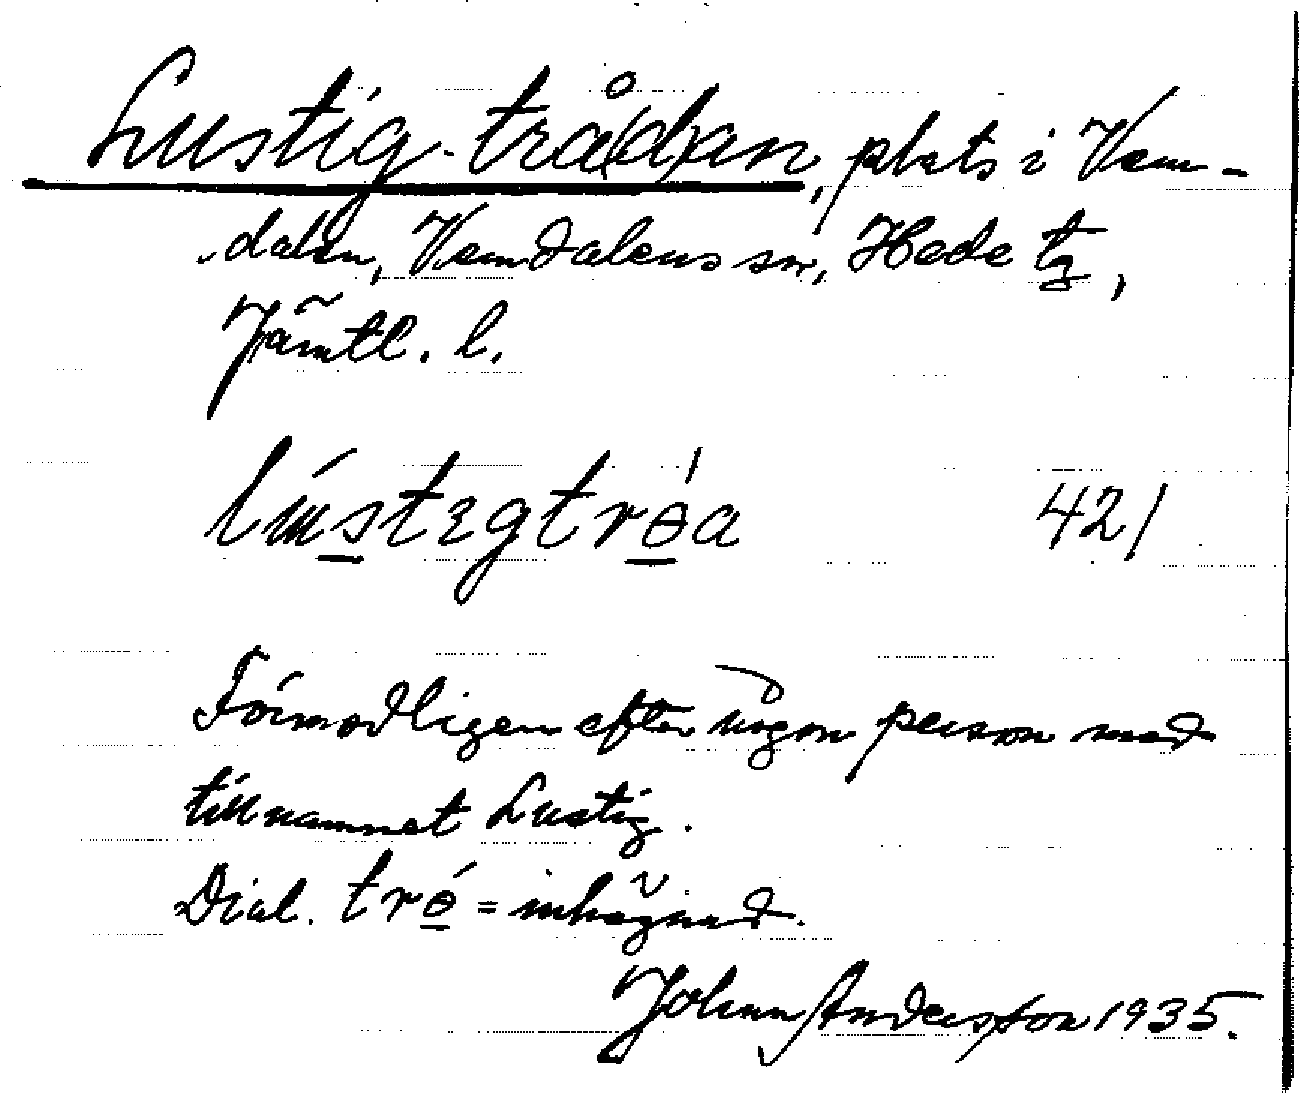 Lustig-trå(d)an, plats i Vem-
dalen, Vemdalens sn, Hede tg,
Jämtl. l.
lústıgtrɵ́a 421
Förmodligen efter någon person med
tillnamnet Lustig.
Dial. trɵ́ = inhägnad.
Johan Andersson 1935.